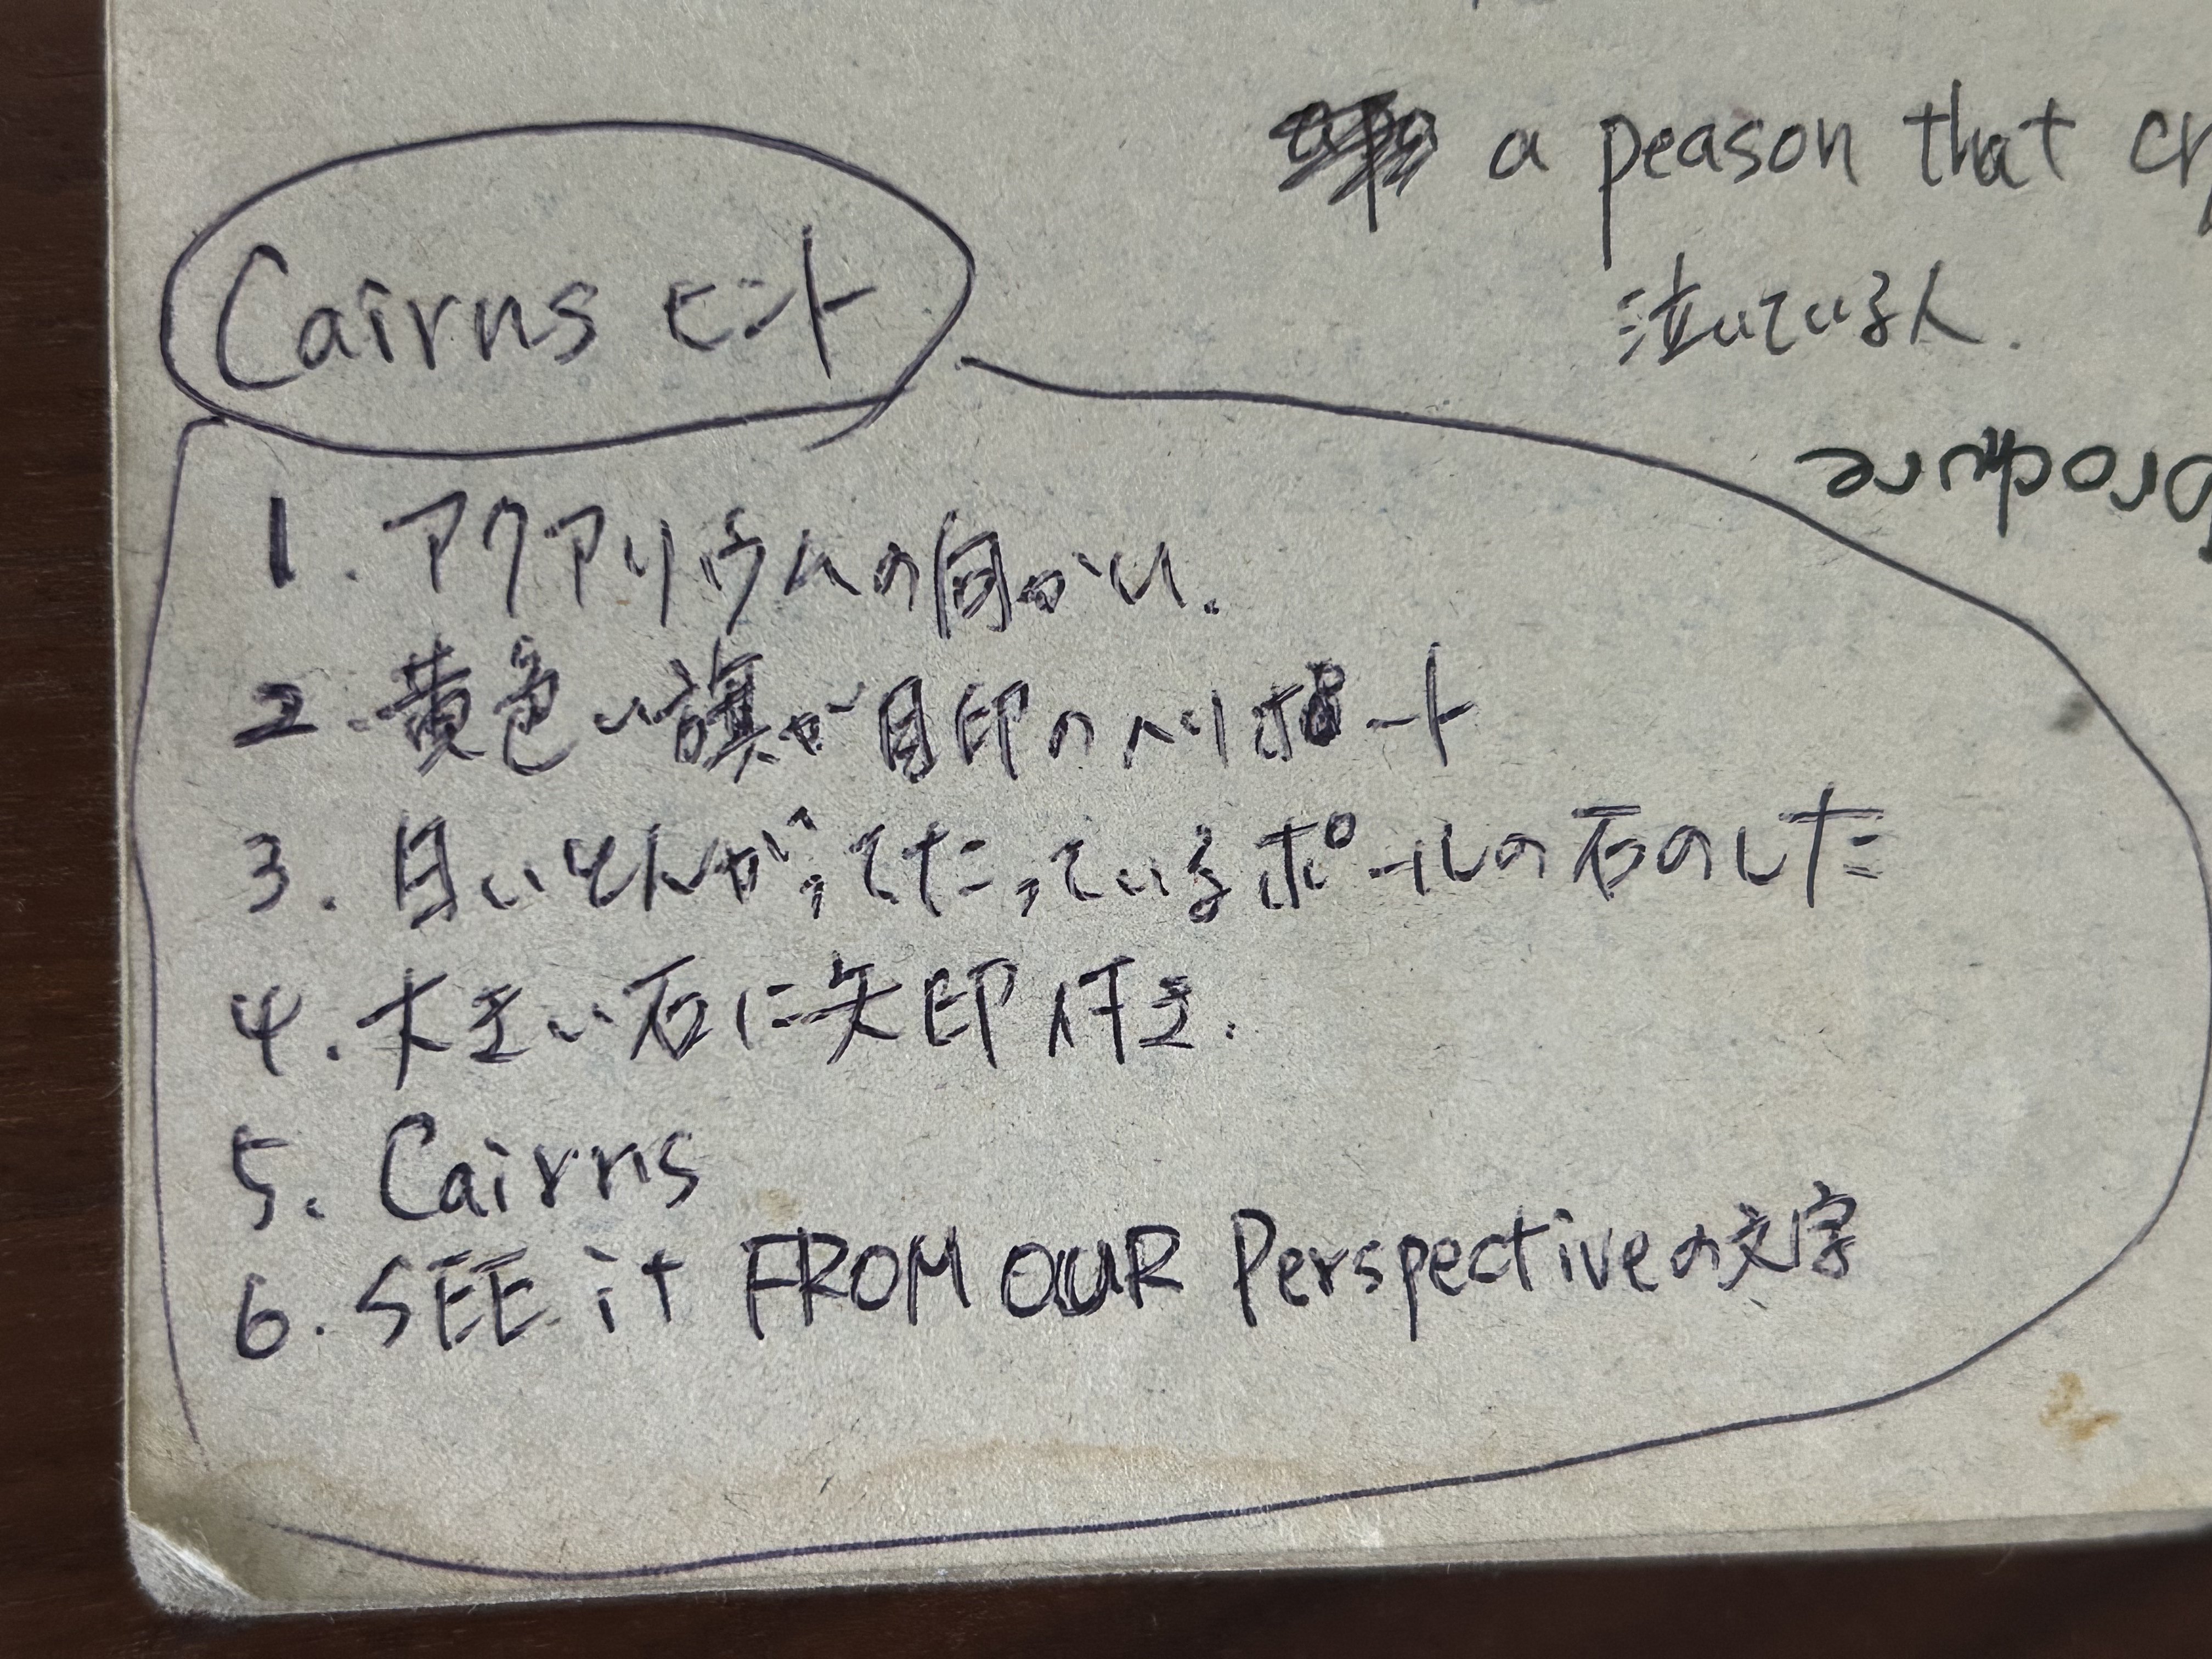 a peason that
泣いている人.
brochure
Cairns ヒント
1. アクアリウムの向かい.
2. 黄色い旗が目印のヘリポート
3. 白いとんがってたっているポールの石のした
4. 大きい石に矢印付き.
5. Cairns
6. SEE it FROM OUR Perspectiveの文字